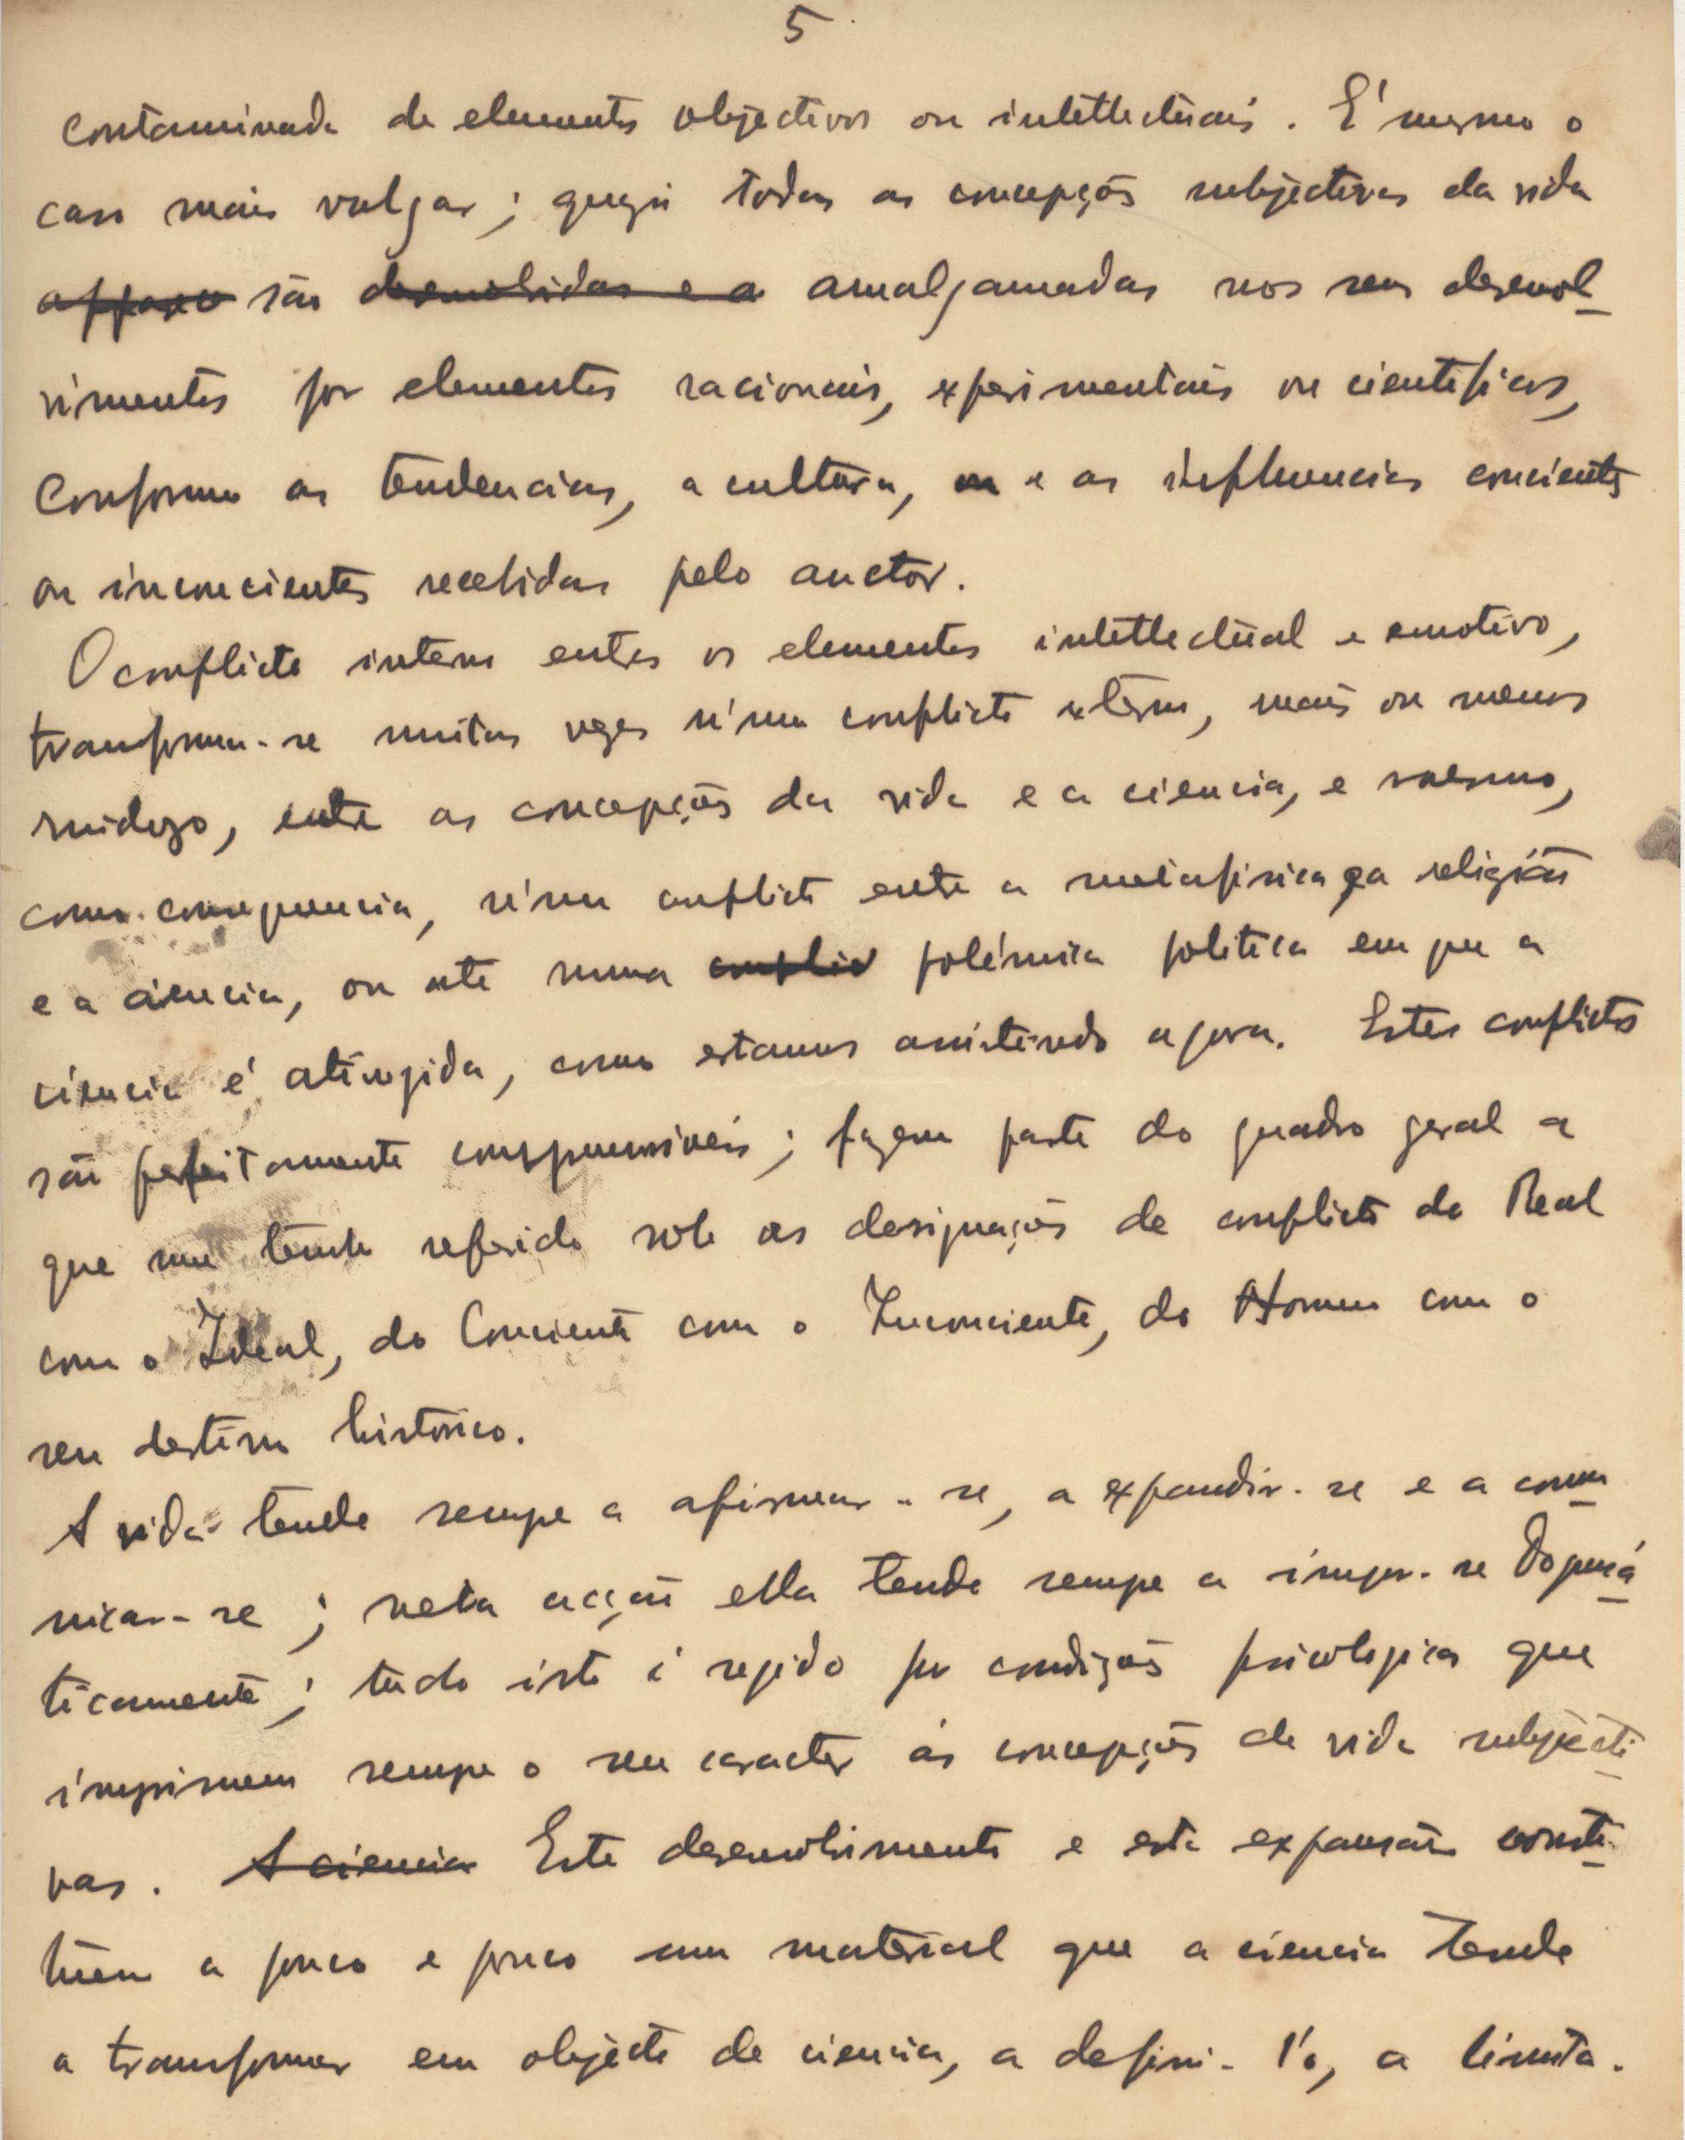 5
contaminada de elementos objectivos ou intellectuais. É mesmo o
caso mais vulgar; quazi todas as concepções subjectivas da vida
são desenvolvidas e a amalgamadas nos seus desenvol-
vimentos por elementos racionais, experimentais ou cientificos,
conforme as tendencias, a cultura, ou e as influencias concientes
ou inconcientes recebidas pelo auctor.
O conflicto interno entre os elementos intellectual e emotivo,
transforma-se muitas vezes n'um conflicto externo, mais ou menos
ruidozo, entre as concepções da vida e a ciencia, e mesmo,
como consequencia, n'um conflicto entre a metafisica e a religião
e a ciencia, ou até numa conflic polémica politica em que a
ciencia é atingida, como estamos assistindo agora. Estes conflictos
são perfeitamente comprensiveis; fazem parte do quadro geral a
que me tenho referido sob as designações de conflicto do Real
com o Ideal, do Conciente com o Inconciente, do Homem com o
seu destino historico.
A vida tende sempre a afirmar-se, a expandir-se e a comu
nicar-se; nesta acção ella tende sempre a impor-se dogmá
ticamente; tudo isto é regido por condições psicologicas que
imprimem sempre o seu caracter ás concepções de vida subjecti
vas. A ciencia Este desenvolvimento e esta expansão consti-
tuem a pouco e pouco um material que a ciencia tende
a transformar em objecto de ciencia, a defini-l'o, a limita-